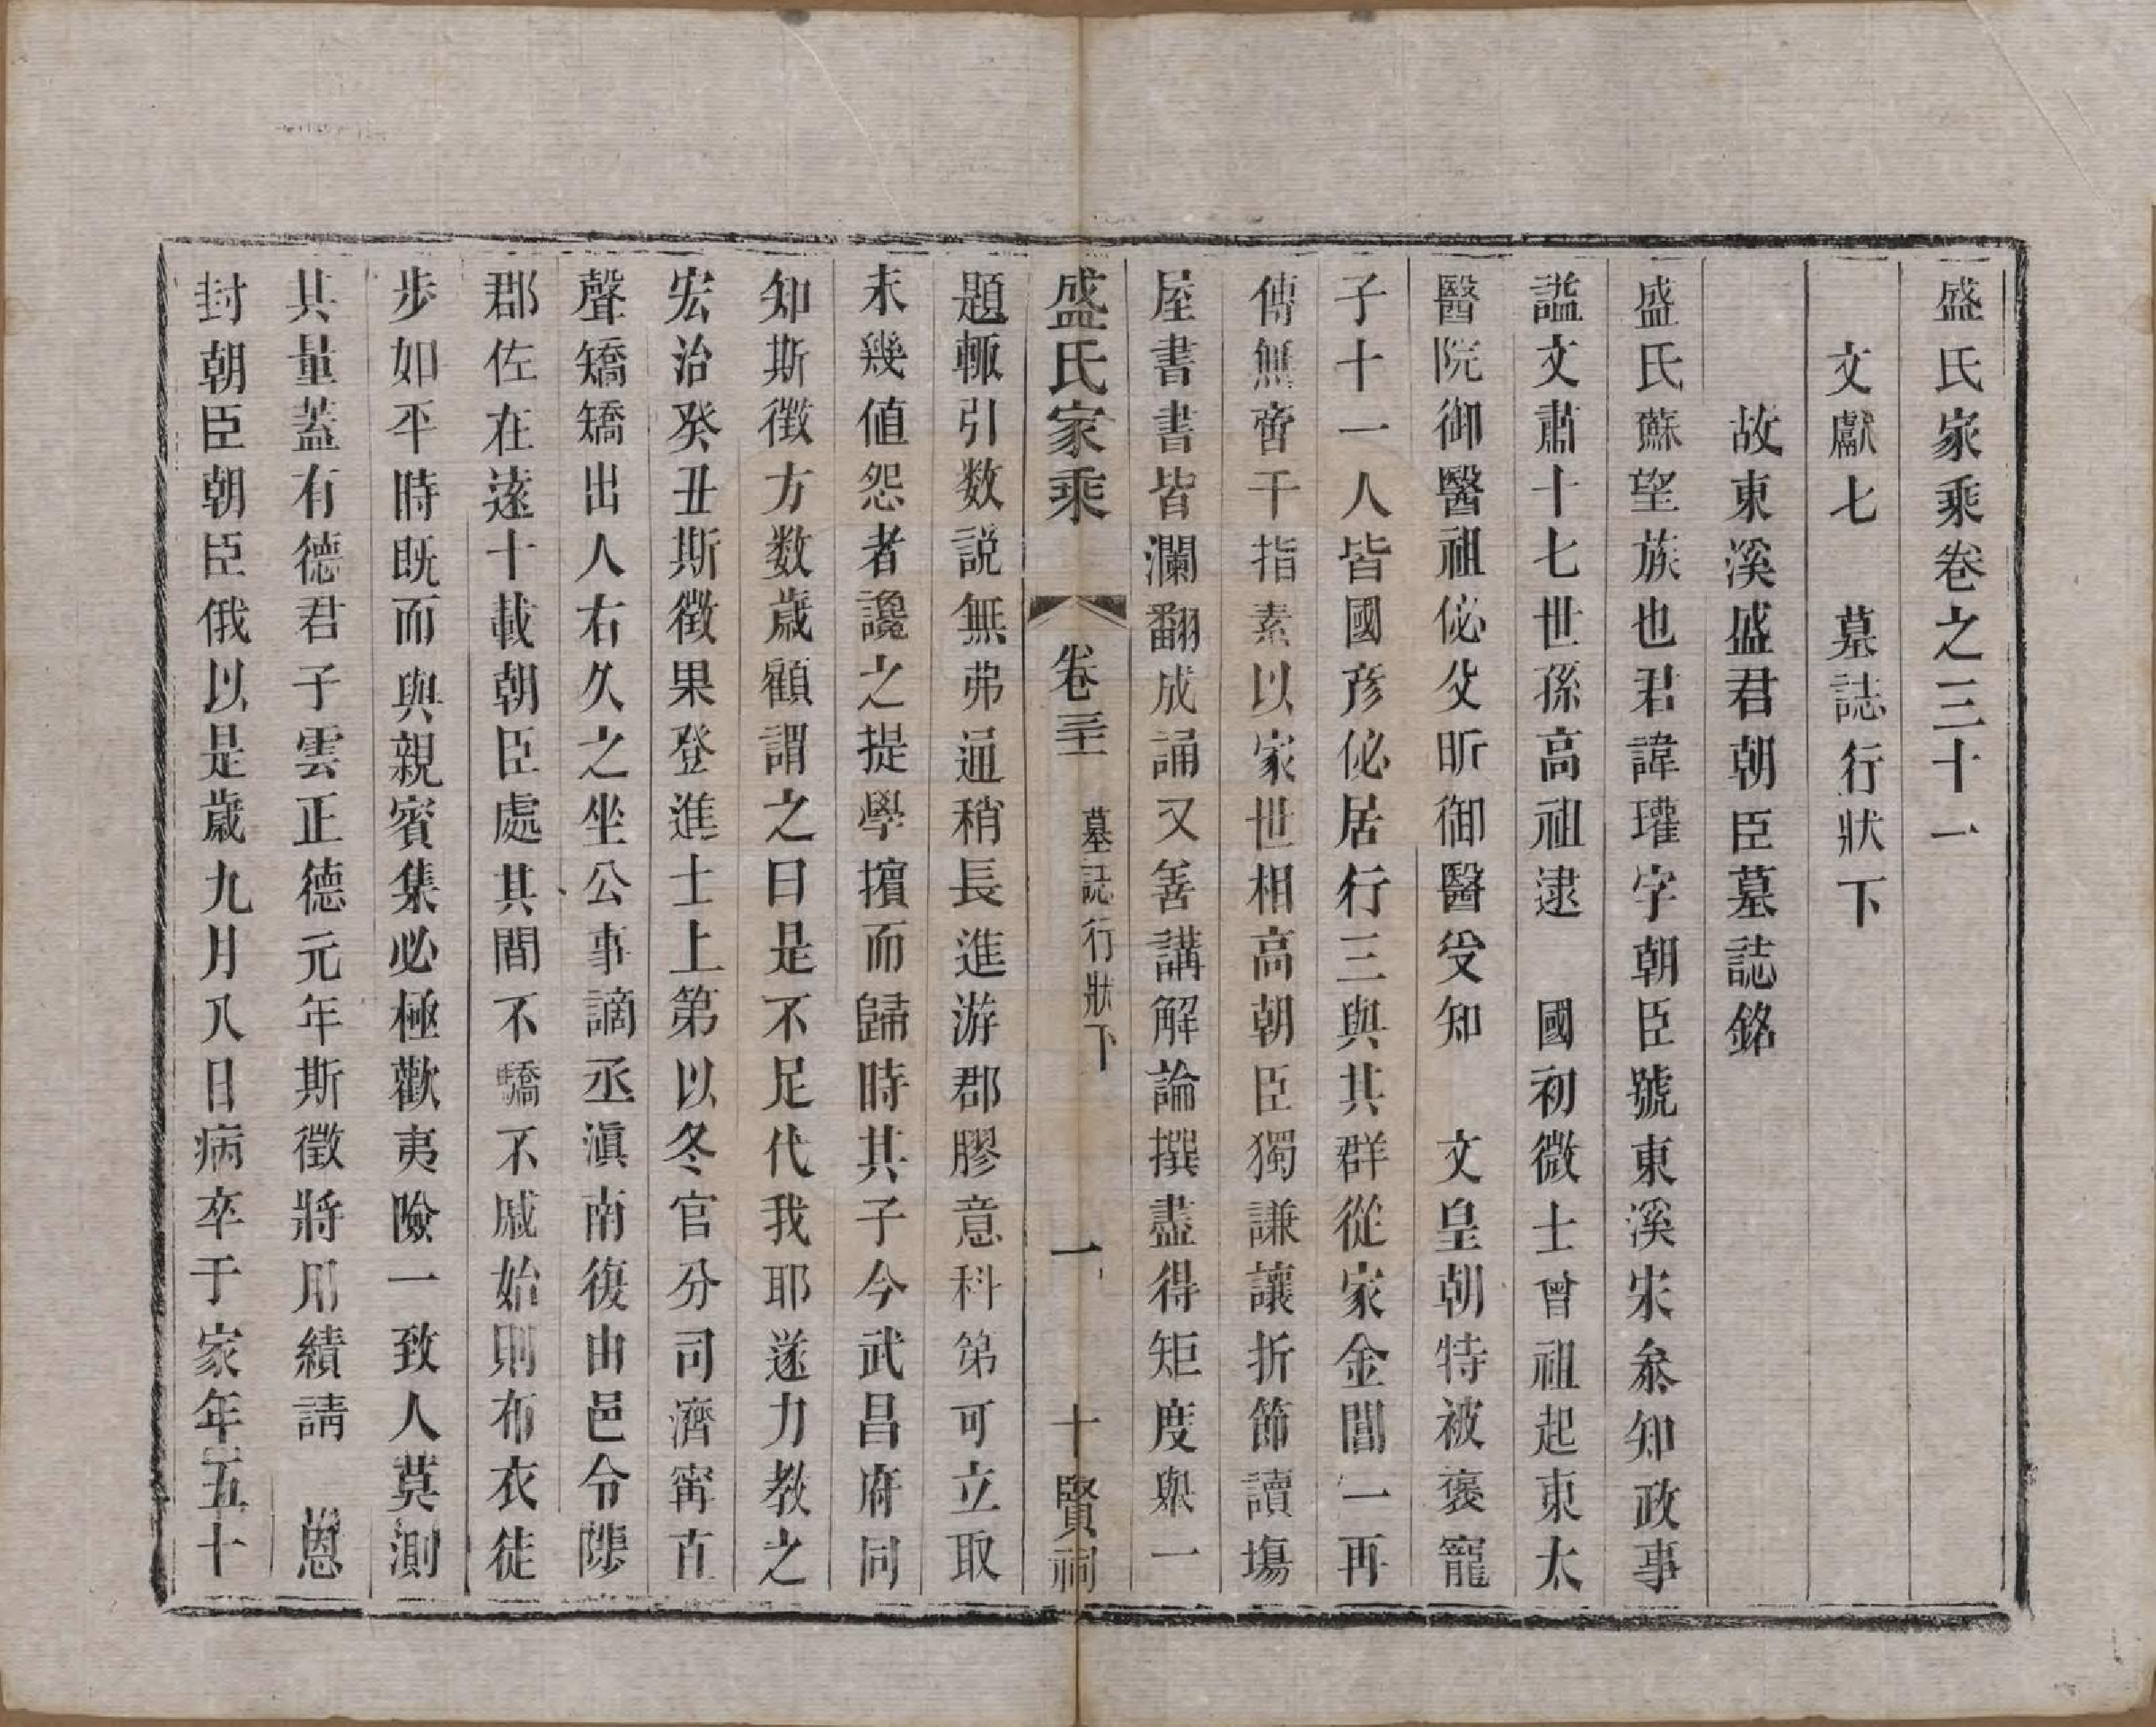 盛氏家乘卷之三十一
文獻七　墓誌行狀下
故東溪盛君朝臣墓誌銘
盛氏蘇望族也君諱瓘字朝臣號東溪宋叅知政事
謚文肅十七世孫高祖逮　國初微士曾祖起東太
醫院御醫祖佖父昕御醫受知　文皇朝特被褒寵
子十一人皆國彥佖居行三與其群從家金閶一再
傳無啻千指素以家世相高朝臣獨謙讓折節讀塲
屋書書皆瀾翻成誦又善講解論撰盡得矩度與一
盛氏家乘　卷三十一　墓誌行狀下　一　十賢祠
題輒引数説無弗通稍長進游郡膠意科第可立取
未幾值怨者讒之提學擯而歸時其子今武昌府同
知斯徵方数歲顧謂之曰是不足代我耶遂力教之
宏治癸丑斯徵果登進士上第以冬官分司濟甯直
聲矯矯出人右久之坐公事謫丞滇南復由邑令陟
郡佐在遠十載朝臣處其間不驕不戚始則布衣徒
步如平時既而與親賓集必極歡夷險一致人莫測
其量蓋有德君子雲正德元年斯徵將用績請　恩
封朝臣朝臣俄以是歲九月八日病卒于家年五十